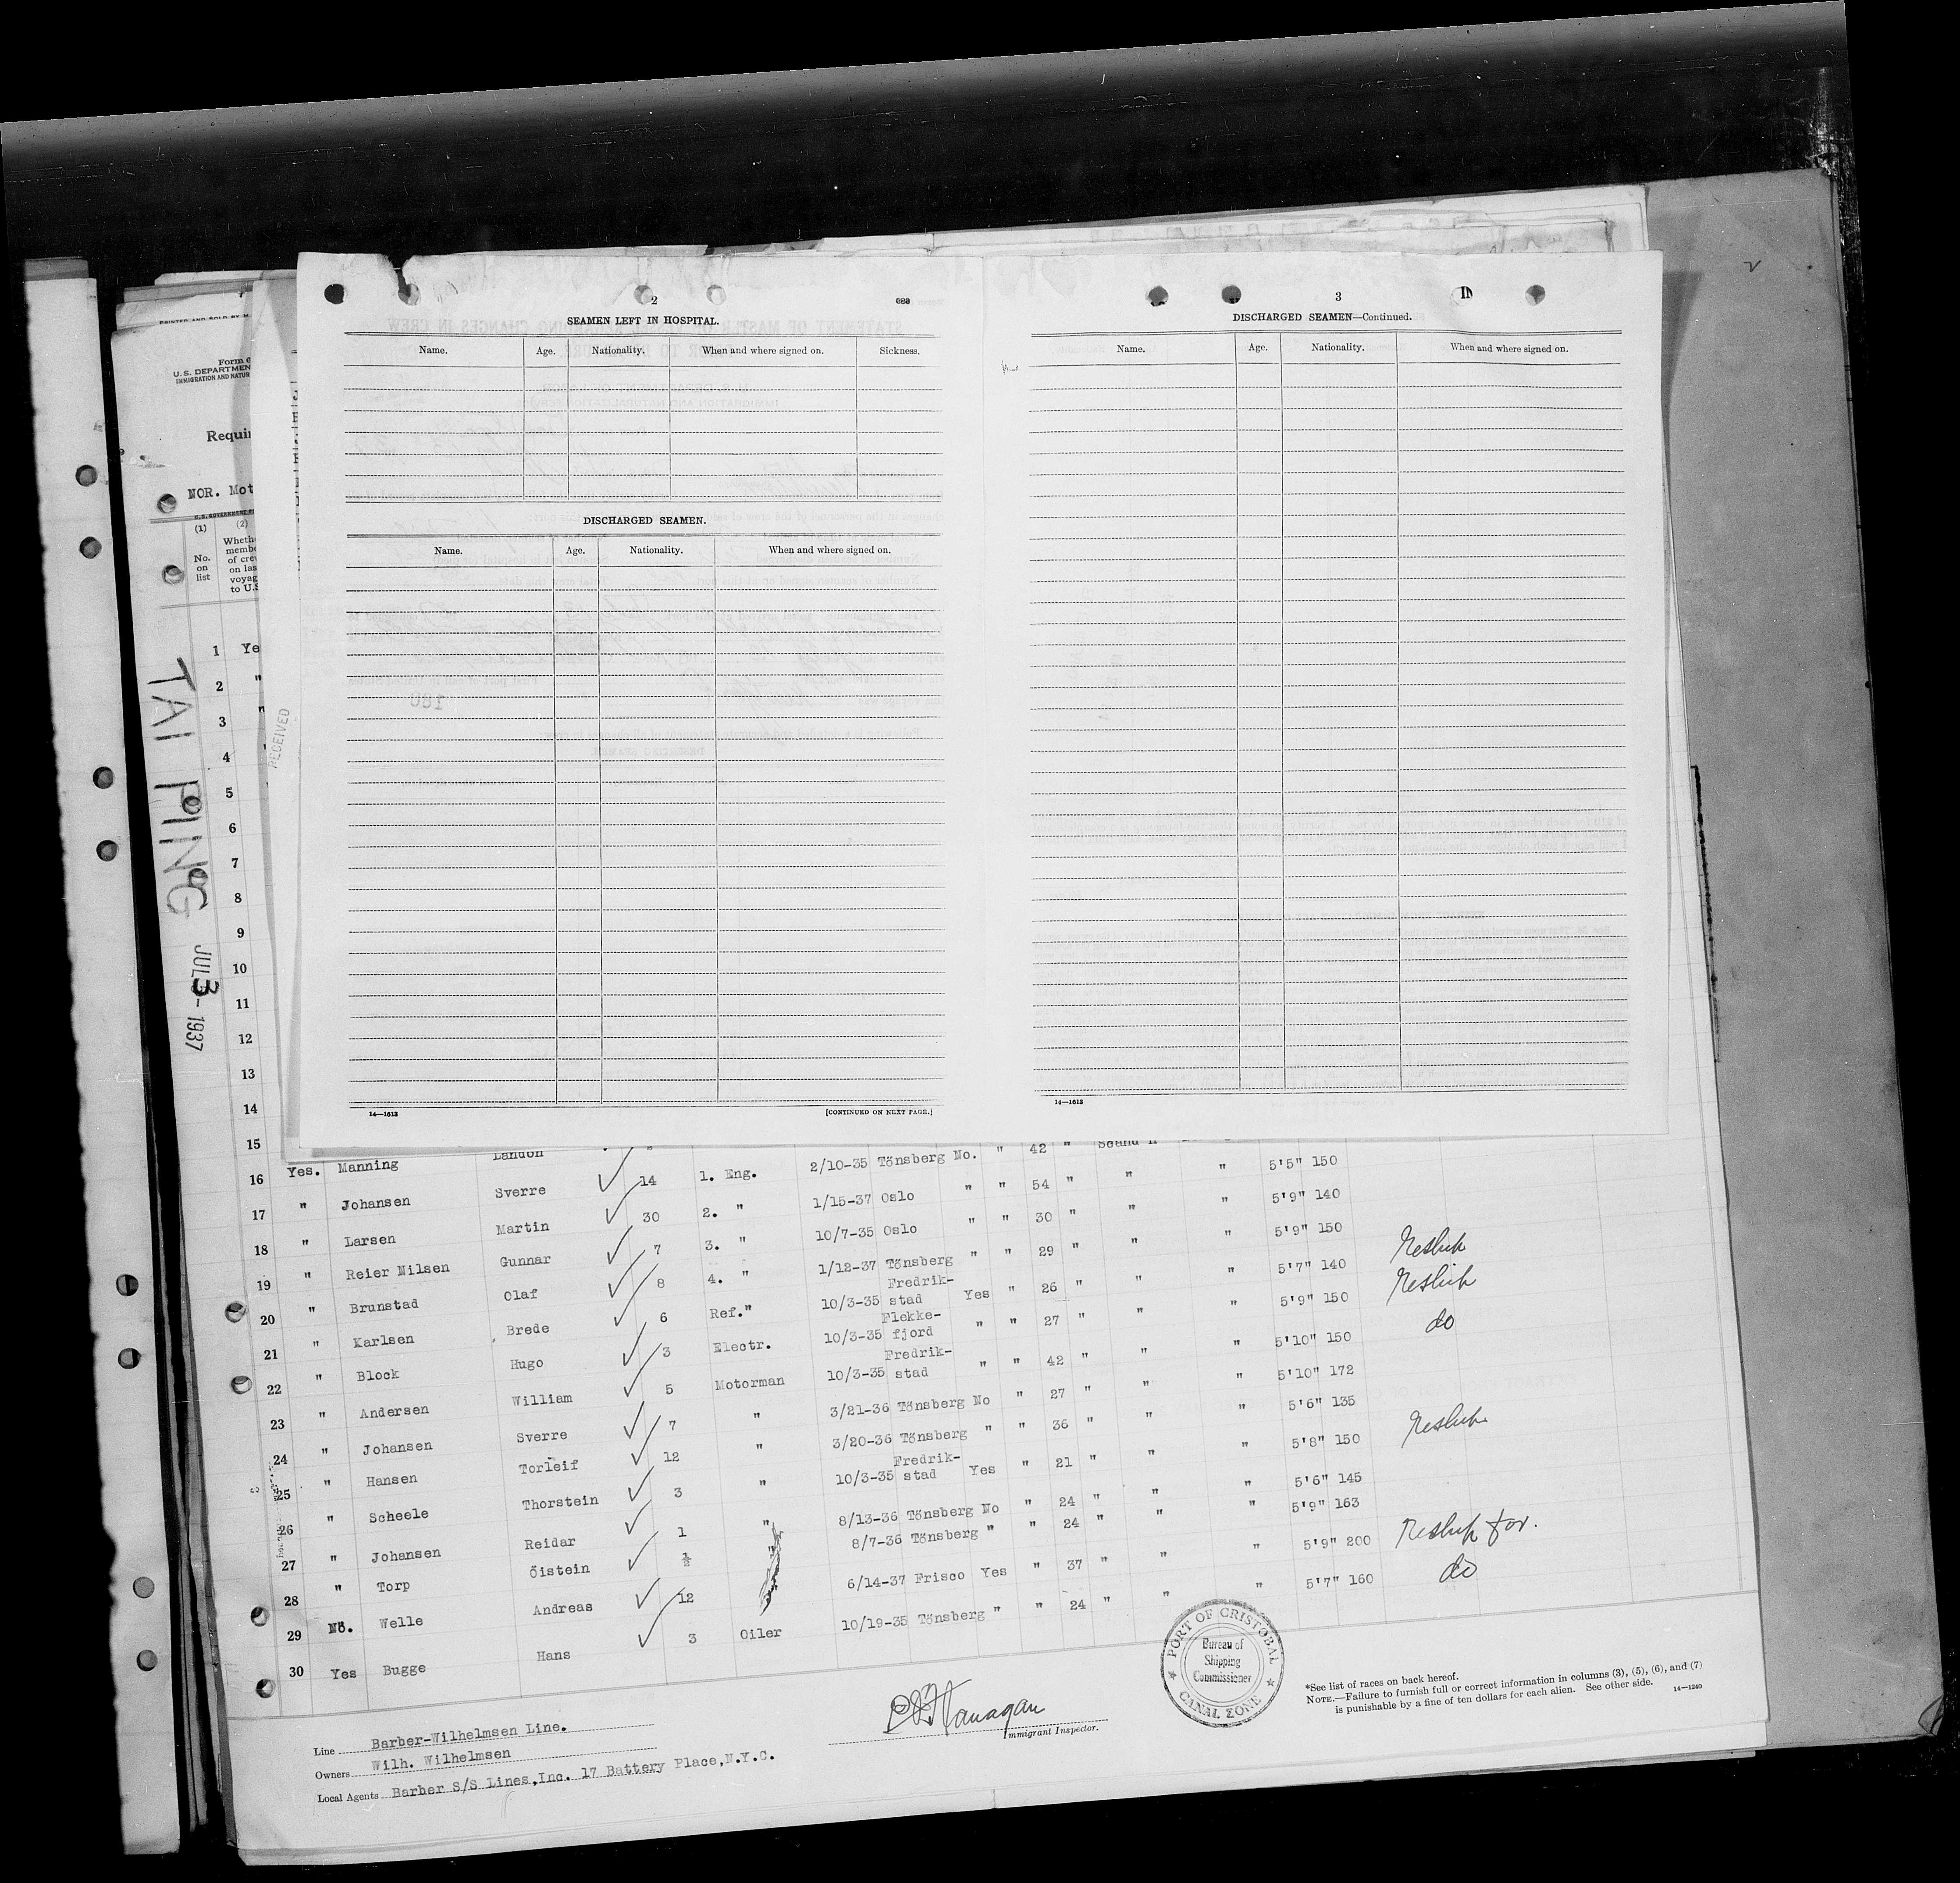 2
SEAMEN LEFT IN HOSPITAL.
Name. Age. Nationality. When and where signed on. Sickness.
DISCHARGED SEAMEN.
Name. Age. Nationality. When and where signed on.
14—1613 [CONTINUED ON NEXT PAGE.]
3
DISCHARGED SEAMEN—Continued.
Name. Age. Nationality. When and where signed on.
14—1613
U. S. DEPARTMEN
IMMIGRATION AND NATUR
Requir
NOR. Mot
(1) (2)
No. on list
Wheth
membe
of cre
on las
voyag
to U.S
TAI PING JUL 3 - 1937
RECEIVED
1 Ye
2 "
3 "
4
5
6
7
8
9
10
11
12
13
14
15
16 Yes. Manning Landon
17 " Johansen Sverre 14 1. Eng. 2/10-35 Tönsberg No. " 42 "
18 " Larsen Martin 30 2. " 1/15-37 Oslo " " 54 " " " 5'5" 150
19 " Reier Nilsen Gunnar 7 3. " 10/7-35 Oslo " " 30 " " " 5'9" 140
20 " Brunstad Olaf 8 4. " 1/12-37 Tönsberg " " 29 " " " 5'9" 150
21 " Karlsen Brede 6 Ref." 10/3-35 Fredrik-stad Yes " 26 " " " 5'7" 140
22 " Block Hugo 3 Electr. 10/3-35 Flekke-fjord " " 27 " " " 5'9" 150
23 " Andersen William 5 Motorman 10/3-35 Fredrik-stad " " 42 " " " 5'10" 150 do
24 " Johansen Sverre 7 " 3/21-36 Tönsberg No " 27 " " " 5'10" 172
25 " Hansen Torleif 12 " 3/20-36 Tönsberg " " 36 " " " 5'6" 135
26 " Scheele Thorstein 3 " 10/3-35 Fredrik-stad Yes " 21 " " " 5'8" 150
27 " Johansen Reidar 1 " 8/13-36 Tönsberg No " 24 " " " 5'6" 145
28 " Torp Öistein ½ 8/7-36 Tönsberg " " 24 " " " 5'9" 163
29 No. Welle Andreas 12 6/14-37 Frisco Yes " 37 " " " 5'9" 200
30 Yes Bugge Hans 3 Oiler 10/19-35 Tönsberg " " 24 " " " 5'7" 160 do
PORT OF CRISTOBAL
Bureau of
Shipping
Commissioner
CANAL ZONE
Immigrant Inspector.
*See list of races on back hereof.
NOTE.—Failure to furnish full or correct information in columns (3), (5), (6), and (7)
is punishable by a fine of ten dollars for each alien. See other side. 14—1240
Line Barber-Wilhelmsen Line.
Owners Wilh. Wilhelmsen
Local Agents Barber S/S Lines,Inc. 17 Battery Place,N.Y.C.